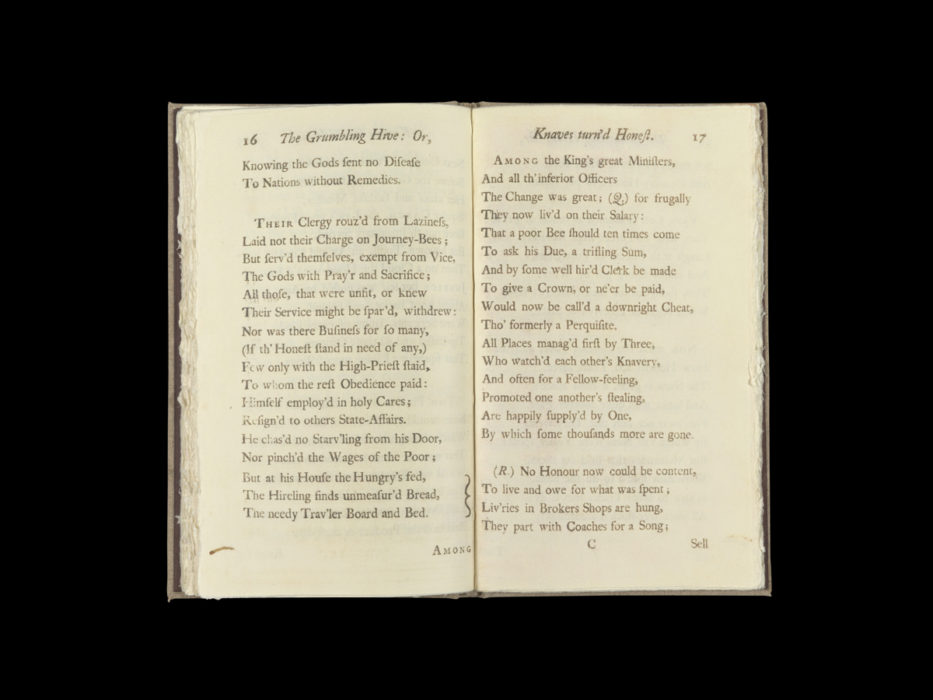 16 The Grumbling Hive: Or,
Knowing the Gods ſent no Diſeaſe
To Nations without Remedies.
THEIR Clergy rouz'd from Lazineſs,
Laid not their Charge on Journey-Bees;
But ſerv'd themſelves, exempt from Vice,
The Gods with Pray'r and Sacrifice;
All thoſe, that were unfit, or knew
Their Service might be ſpar'd, withdrew:
Nor was there Buſineſs for ſo many,
(If th' Honeſt ſtand in need of any,)
Few only with the High-Prieſt ſtaid,
To whom the reſt Obedience paid:
Himſelf employ'd in holy Cares;
Reſign'd to others State-Affairs.
He chas'd no Starv'ling from his Door,
Nor pinch'd the Wages of the Poor;
But at his Houſe the Hungry's fed,
The Hireling finds unmeaſur'd Bread,
The needy Trav'ler Board and Bed.
AMONG
Knaves turn'd Honeſt. 17
AMONG the King's great Miniſters,
And all th' inferior Officers
The Change was great; (Q.) for frugally
They now liv'd on their Salary:
That a poor Bee ſhould ten times come
To ask his Due, a trifling Sum,
And by ſome well hir'd Clerk be made
To give a Crown, or ne'er be paid,
Would now be call'd a downright Cheat,
Tho' formerly a Perquiſite.
All Places manag'd firſt by Three,
Who watch'd each other's Knavery,
And often for a Fellow-feeling,
Promoted one another's ſtealing,
Are happily ſupply'd by One,
By which ſome thouſands more are gone.
(R.) No Honour now could be content,
To live and owe for what was ſpent;
Liv'ries in Brokers Shops are hung,
They part with Coaches for a Song;
C Sell